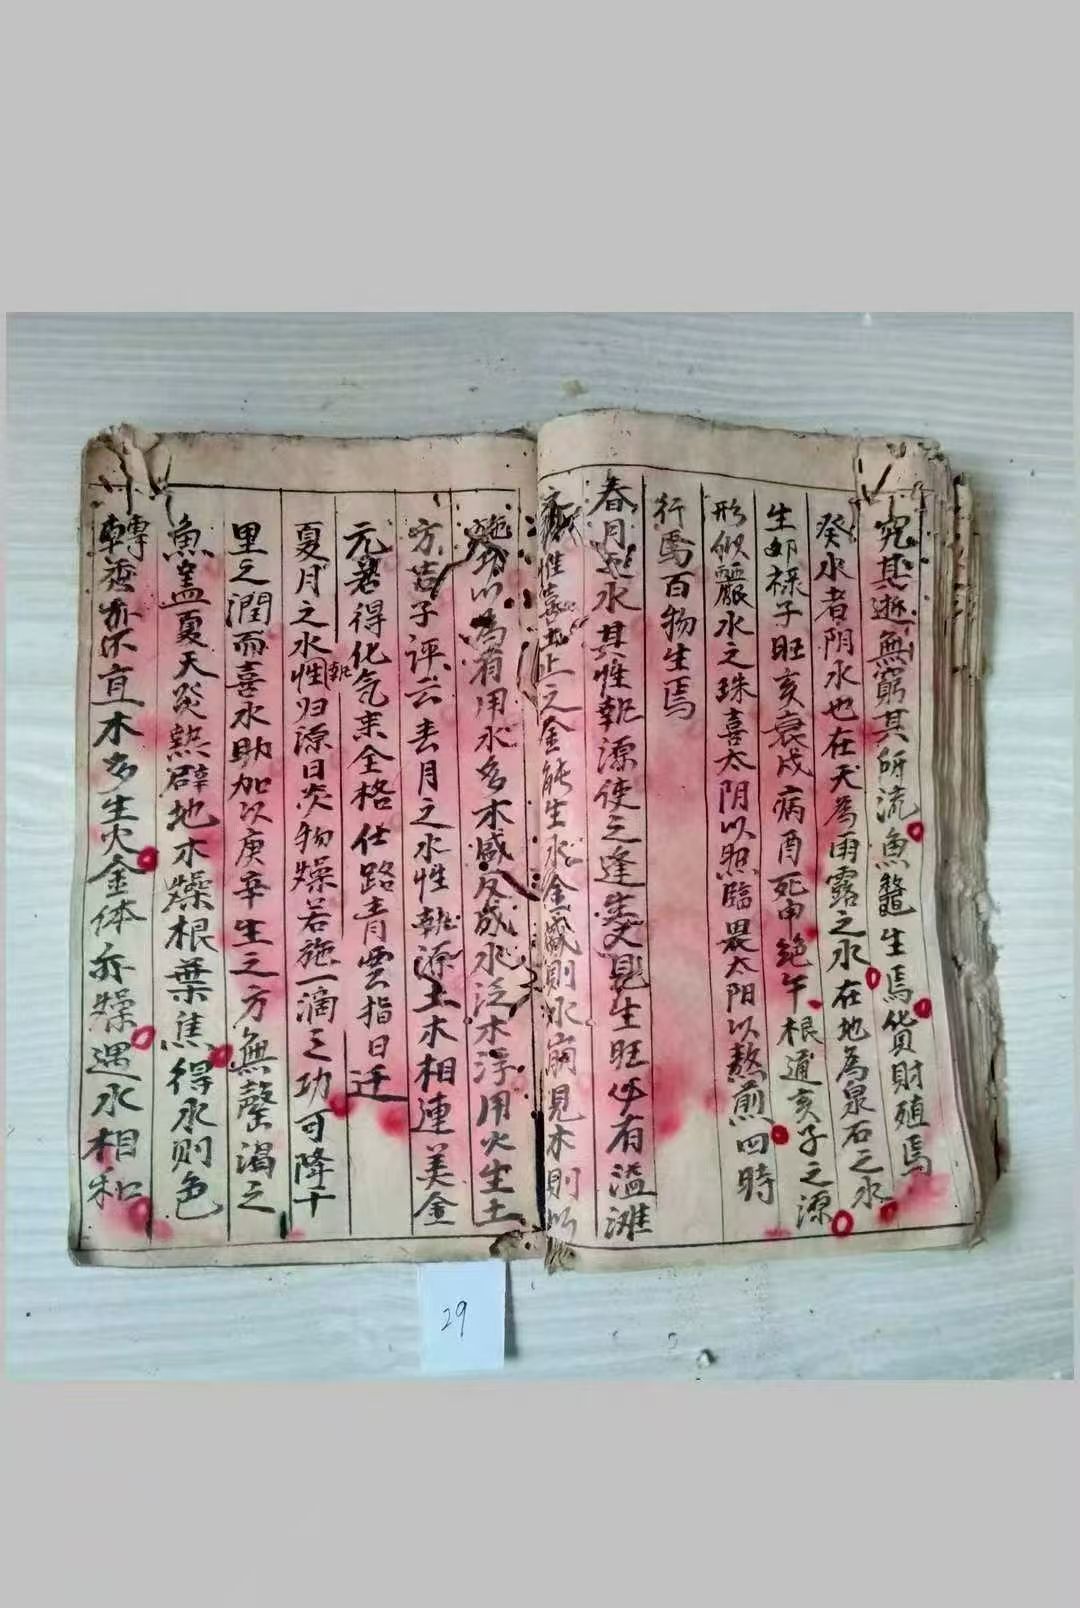 究其逝無窮其所流魚鼈生焉貨財殖焉
癸水者阴水也在天為雨露之水在地為泉石之水
生卯禄子旺亥衰戌病酉死申绝午根通亥子之源
形似麗水之珠喜太阴以照臨畏太阳以熬煎四時
行焉百物生焉
春月之水其性執源使之逢生見生旺必有溢滩
性喜土止之金能生水金盛則水崩見木則
以為有用水多木盛反成水泛木浮用火生土
方吉子评云春月之水性執源土木相連美金
元若得化气来全格仕路青雲指日迁
夏月之水性執归源日炎物燥若施一滴之功可降十
里之潤而喜水助加以庚辛生之方無罄渴之
魚盖夏天炎熱辟地木燥根葉焦得水则色
轉亦不宜木多生火金体亦燥遇水相和
29